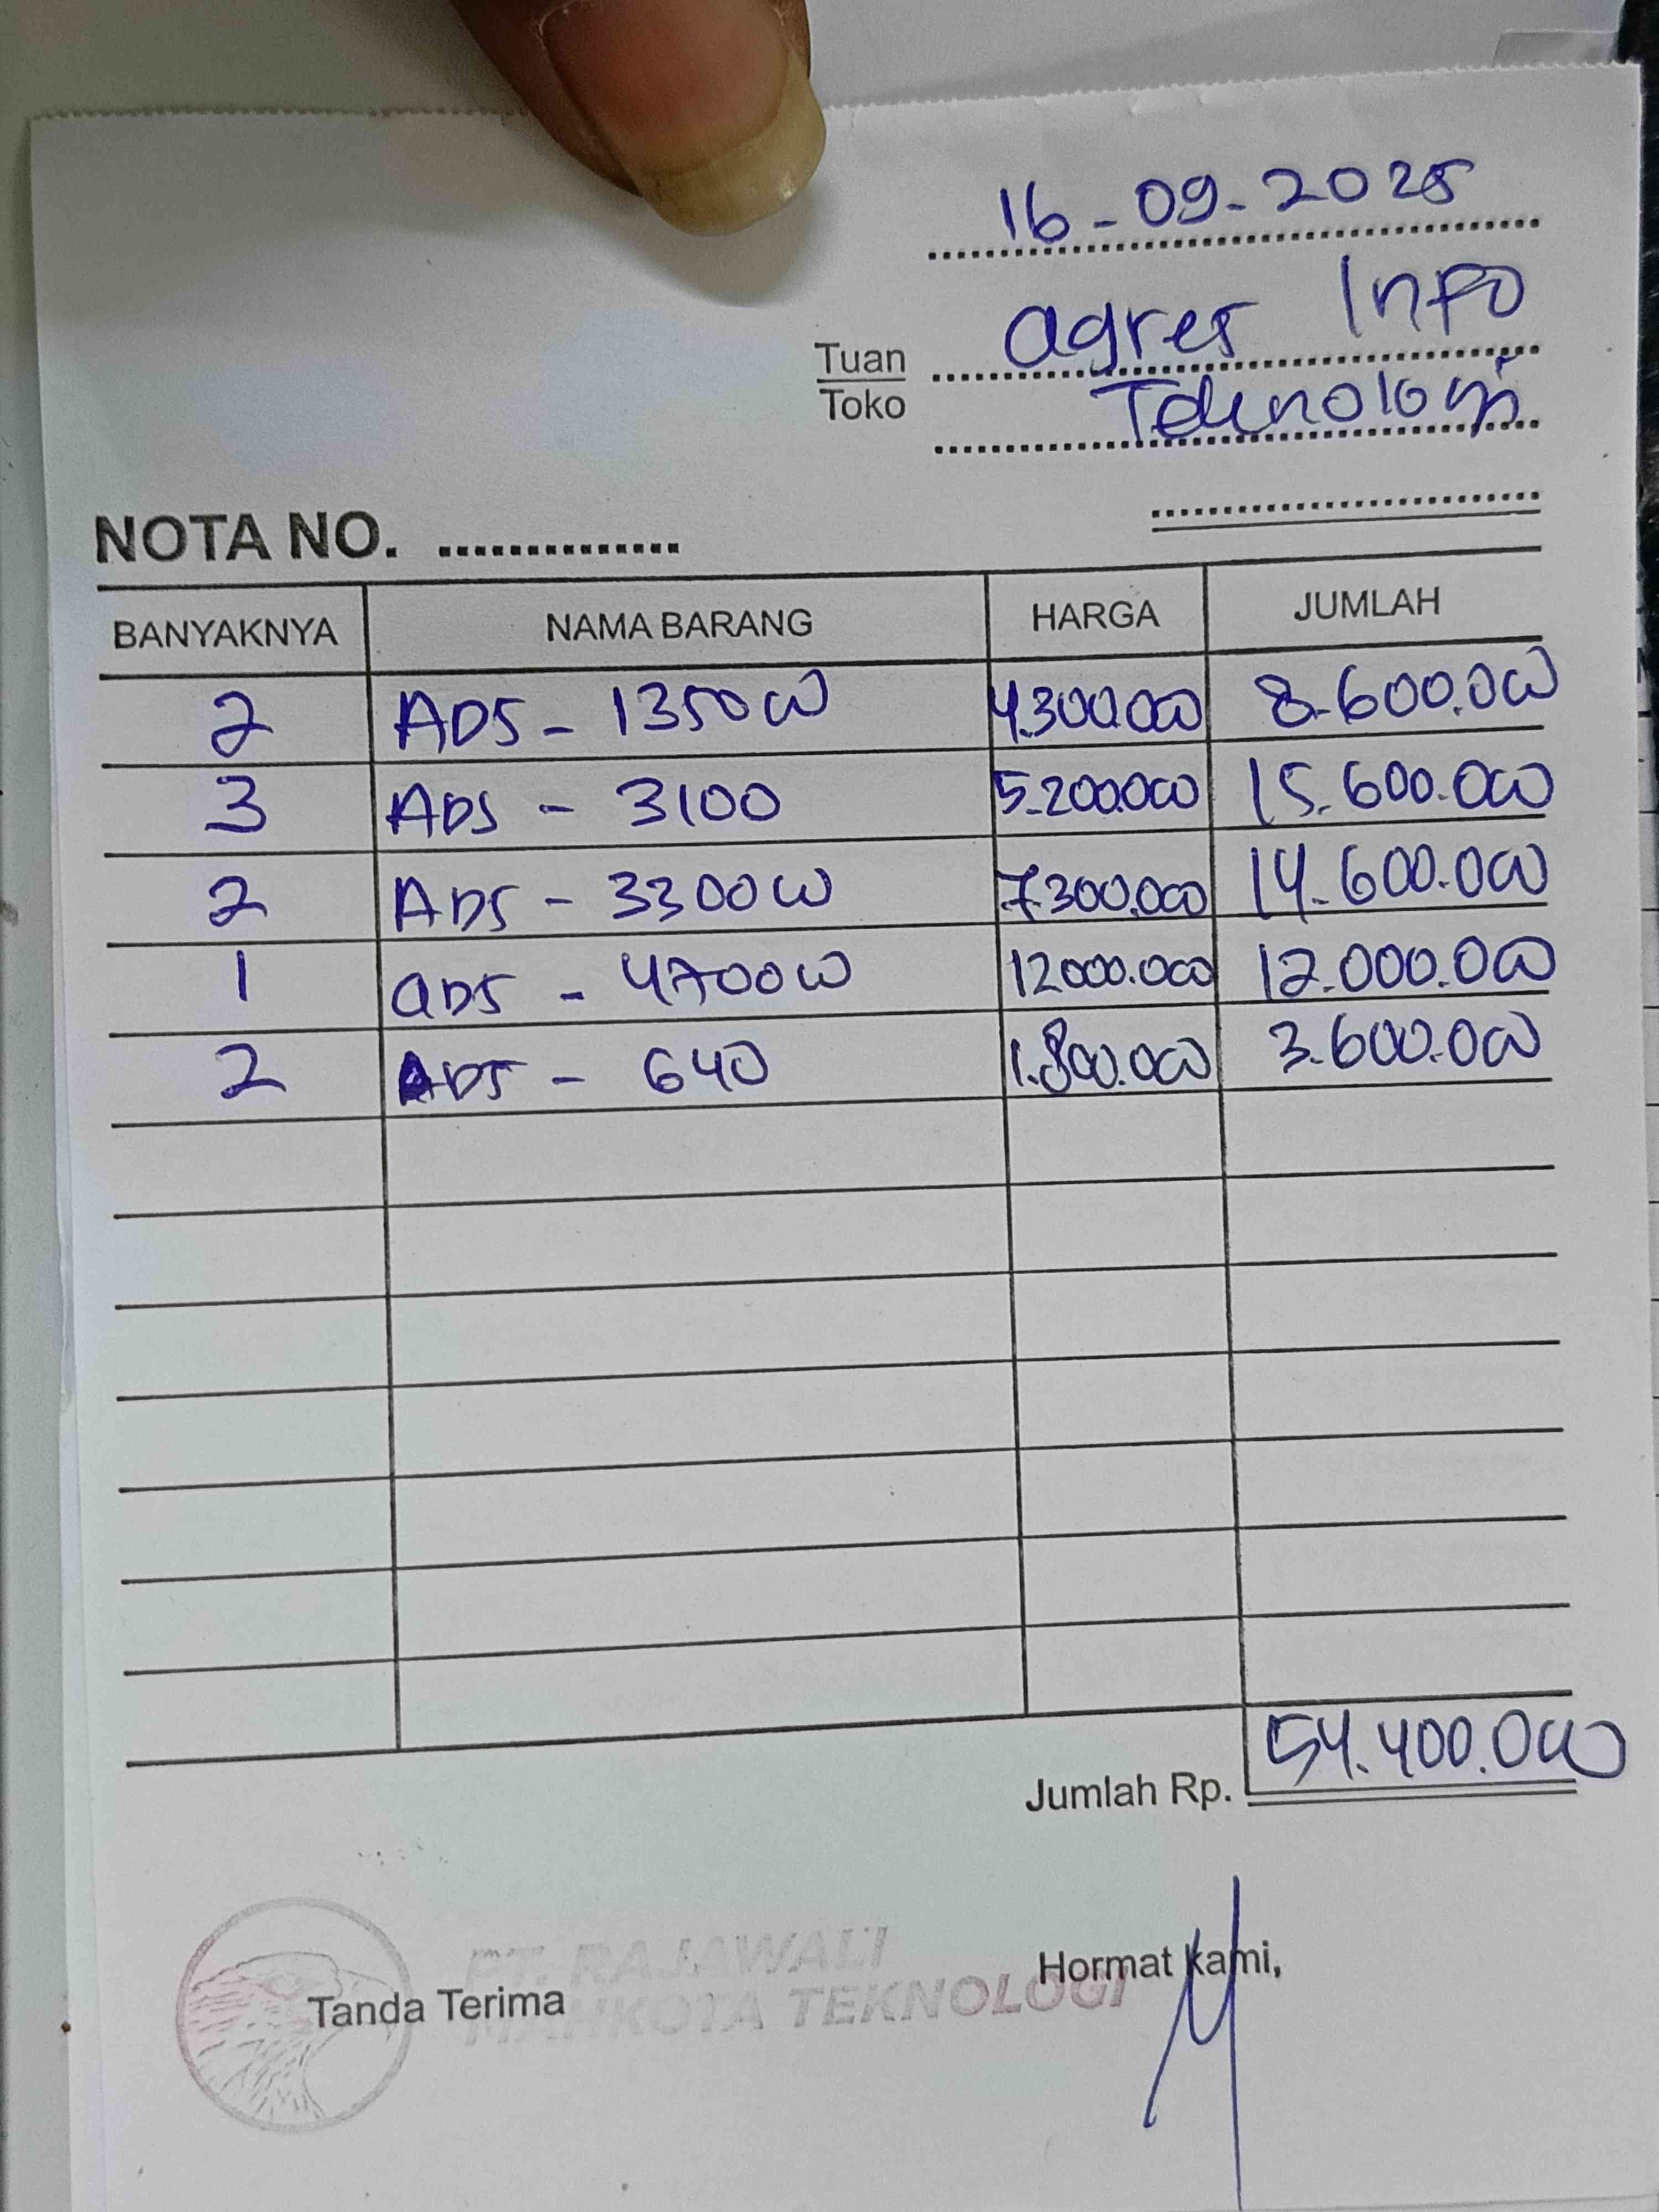 16-09-2025
Tuan
Toko
agres Info
Teknologi.
NOTA NO. ..............
BANYAKNYA NAMA BARANG HARGA JUMLAH
2 ADS - 1350W 4.300.000 8.600.000
3 ADS - 3100 5.200.000 15.600.000
2 ADS - 3300W 7.300.000 14.600.000
1 aDS - 4700W 12.000.000 12.000.000
2 ADS - 640 1.800.000 3.600.000
Jumlah Rp. 54.400.000
PT. RAJAWALI
MAHKOTA TEKNOLOGI
Tanda Terima
Hormat kami,